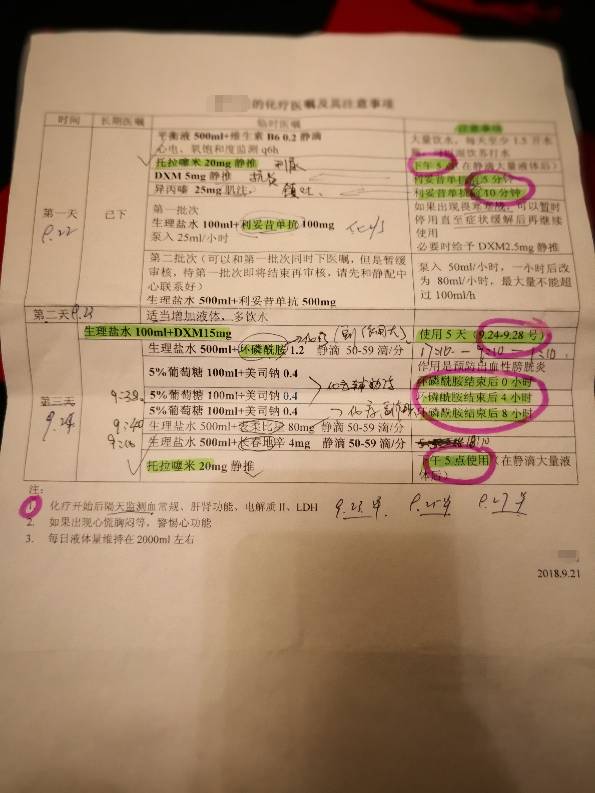 的化疗医嘱及其注意事项
时间 长期医嘱 临时医嘱 注意事项
平衡液 500ml+维生素 B6 0.2 静滴
心电、氧饱和度监测 q6h
大量饮水，每天至少 1.5 升水
托拉噻米 20mg 静推
下午 5 在静滴大量液体后）
DXM 5mg 静推 抗炎
利妥昔单抗 5 分钟
异丙嗪 25mg 肌注 镇吐
利妥昔单抗 10 分钟
第一天
9.22
已下
第一批次
生理盐水 100ml+利妥昔单抗 100mg
泵入 25ml/小时
如果出现 可以暂时
停用直至症状缓解后再继续
使用
必要时给予 DXM2.5mg 静推
第二批次（可以和第一批次同时下医嘱，但是暂缓
审核，待第一批次即将结束再审核，请先和静配中
心联系好）
生理盐水 500ml+利妥昔单抗 500mg
泵入 50ml/小时，一小时后改
为 80ml/小时，最大量不能超
过 100ml/h
第二天 9.23 适当增加液体、多饮水
生理盐水 100ml+DXM15mg
使用 5 天（9.24-9.28 号）
生理盐水 500ml+环磷酰胺 1.2 静滴 50-59 滴/分
5%葡萄糖 100ml+美司钠 0.4
作用是预防出血性膀胱炎
环磷酰胺结束后 0 小时
第三天
9.24
5%葡萄糖 100ml+美司钠 0.4
环磷酰胺结束后 4 小时
5%葡萄糖 100ml+美司钠 0.4
环磷酰胺结束后 8 小时
生理盐水 250ml+表柔比星 80mg 静滴 50-59 滴/分
生理盐水 500ml+长春地辛 4mg 静滴 50-59 滴/分
托拉噻米 20mg 静推
下午 5 点使用（在静滴大量液
体后）
注：
1. 化疗开始后隔天监测血常规、肝肾功能、电解质Ⅱ、LDH 9.23 9.25 9.27
2. 如果出现心慌胸闷等，警惕心功能
3. 每日液体量维持在 2000ml 左右
2018.9.21